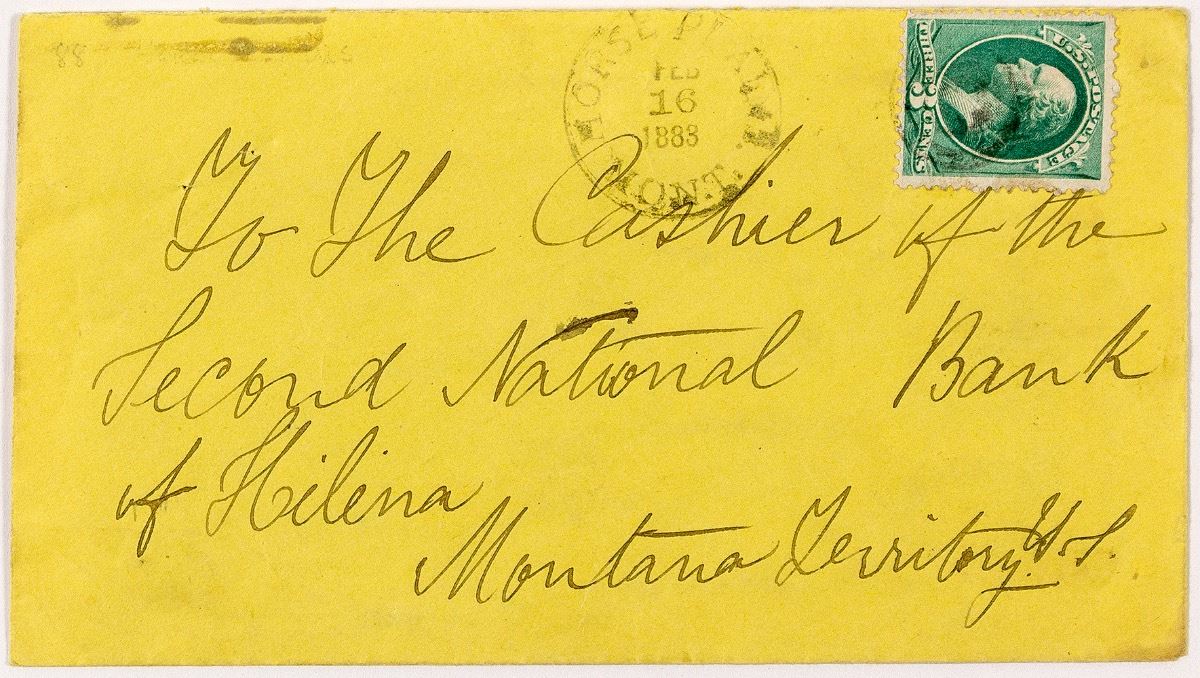 88
HORSE PLAINS
FEB
16
1883
MONT.
U.S. POSTAGE
THREE 3 CENTS
To The Cashier of the
Second National Bank
of Hilena
Montana Territory. U.S.